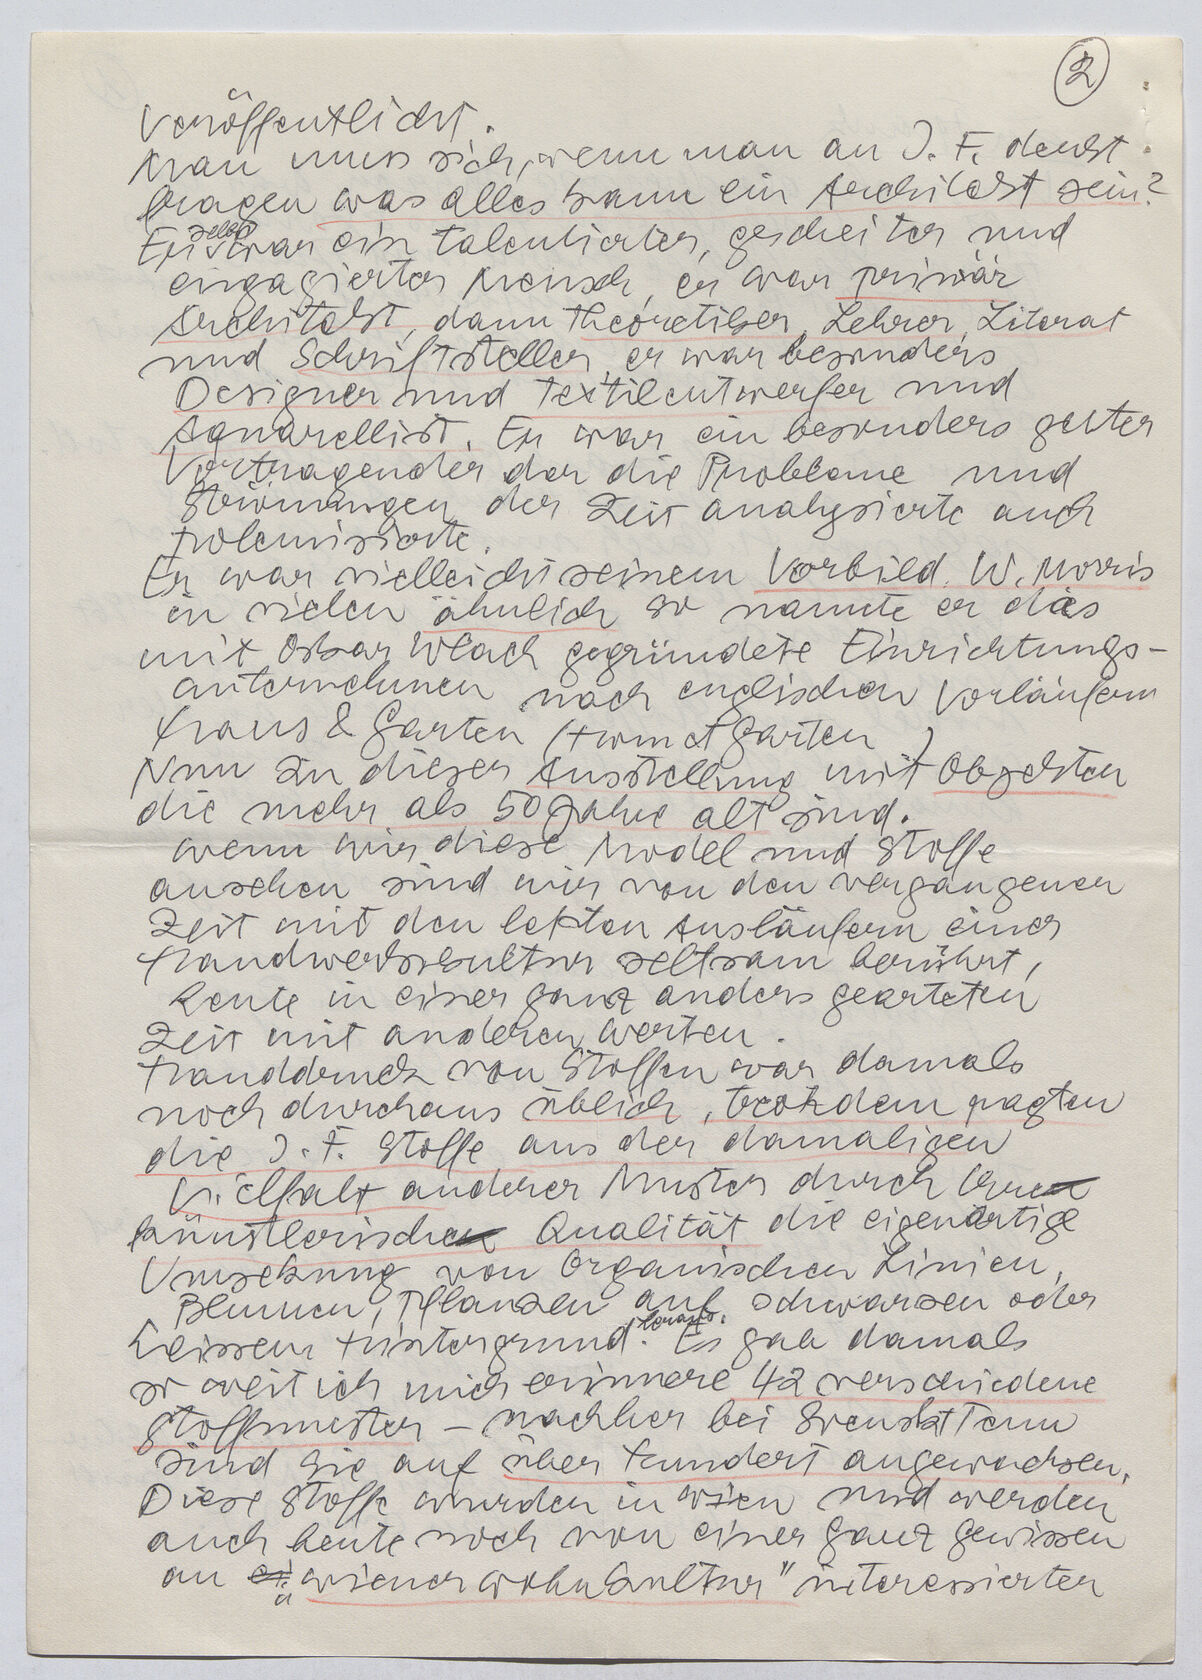 2
Veröffentlicht.
Man muss sich, wenn man an J. F. denkt
fragen was alles kann ein Architekt sein?
Er selbst war ein talentierter, gescheiter und
engagierter Mensch, er war primär
Architekt, dann Theoretiker, Lehrer, Literat
und Schriftsteller, er war besonders
Designer und Textilentwerfer und
Aquarellist. Er war ein besonders guter
Vortragender der die Probleme und
Strömungen der Zeit analysierte auch
polemisierte.
Er war vielleicht seinem Vorbild W. Morris
in vielen ähnlich so nannte er das
mit Oskar Wlach gegründete Einrichtungs-
unternehmen nach englischen Vorläufern
Haus & Garten (Home & Garten)
Nun zu dieser Ausstellung mit Objekten
die mehr als 50 Jahre alt sind.
wenn wir diese Model und Stoffe
ansehen sind wir von den vergangener
Zeit mit den letzten Ausläufern einer
Handwerkskultur seltsam berührt,
heute in einer ganz anders gearteten
Zeit mit anderen Werten.
Handdruck von Stoffen war damals
noch durchaus üblich, trotzdem ragten
die J. F. Stoffe aus der damaligen
Vielfalt anderer Muster durch ihre
künstlerische Qualität die eigenartige
Umsetzung von Organischen Linien,
Blumen, Pflanzen auf schwarzen oder
weissem Hintergrund heraus. Es gab damals
so weit ich mich erinnere 42 verschiedene
Stoffmuster – nachher bei Svenskt Tenn
sind sie auf über Hundert angewachsen,
Diese Stoffe wurden in Wien und werden
auch heute noch von einer ganz gewissen
an "wiener wohnkultur" interessierten